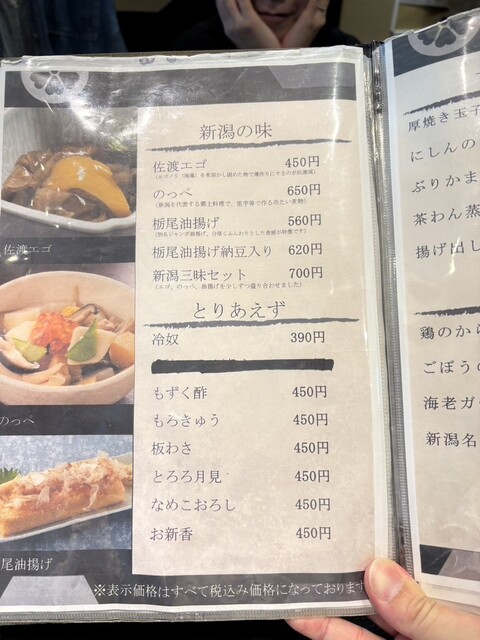 新潟の味
佐渡エゴ 450円
(エゴノリ（海藻）を煮溶かし固めた物で薄作りにするのが佐渡流)
のっぺ 650円
(新潟を代表する郷土料理で、里芋等で作る冷たい煮物)
栃尾油揚げ 560円
(別名ジャンボ油揚げ、分厚くふんわりとした食感が特徴です)
栃尾油揚げ納豆入り 620円
新潟三昧セット 700円
(エゴ、のっぺ、油揚げを少しずつ盛り合わせました)
とりあえず
冷奴 390円
もずく酢 450円
もろきゅう 450円
板わさ 450円
とろろ月見 450円
なめこおろし 450円
お新香 450円
※表示価格はすべて税込み価格になっております
佐渡エゴ
のっぺ
尾油揚げ
厚焼き玉子
にしんの
ぶりかま
茶わん蒸
揚げ出し
鶏のから
ごぼうの
海老ガ
新潟名